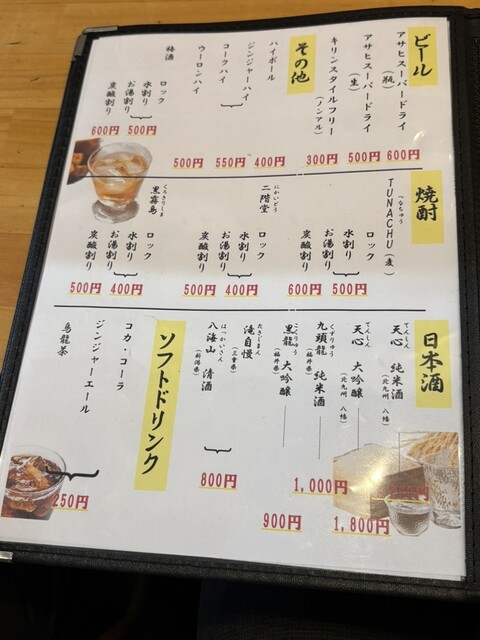 ビール
アサヒスーパードライ
(瓶)
600円
アサヒスーパードライ
(生)
500円
キリンスタイルフリー
(ノンアル)
300円
その他
ハイボール
400円
ジンジャーハイ
コークハイ
550円
ウーロンハイ
500円
梅酒
ロック
水割り
お湯割り
500円
炭酸割り
600円
焼酎
つなちゅう
TUNACHU(麦)
ロック
水割り
お湯割り
500円
炭酸割り
600円
にかいどう
二階堂
ロック
水割り
お湯割り
400円
炭酸割り
500円
くろきりしま
黒霧島
ロック
水割り
お湯割り
400円
炭酸割り
500円
日本酒
てんしん
天心 純米酒
(北九州 八幡)
てんしん
天心 大吟醸
(北九州 八幡)
1,800円
くずりゅう
九頭龍 純米酒
(福井県)
1,000円
こくりゅう
黒龍 大吟醸
(福井県)
900円
たきじまん
滝自慢
(三重県)
はっかいさん
八海山 清酒
(新潟県)
800円
ソフトドリンク
コカ・コーラ
ジンジャーエール
烏龍茶
250円